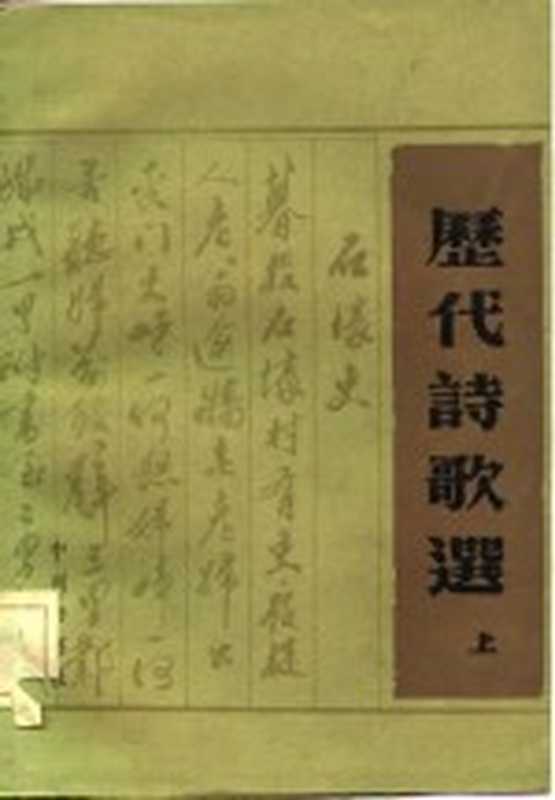 歷代詩歌選
上
石壕吏
暮投石壕村有吏夜捉
人老翁逾牆走老婦出
门吏呼一何怒婦啼一何
苦聽婦前致辭三男鄴
城戍一男附書至二男